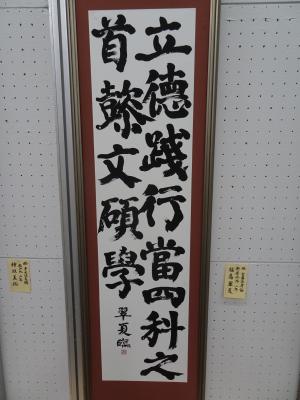 立德踐行當四科之
首懿文碩學
翠夏臨